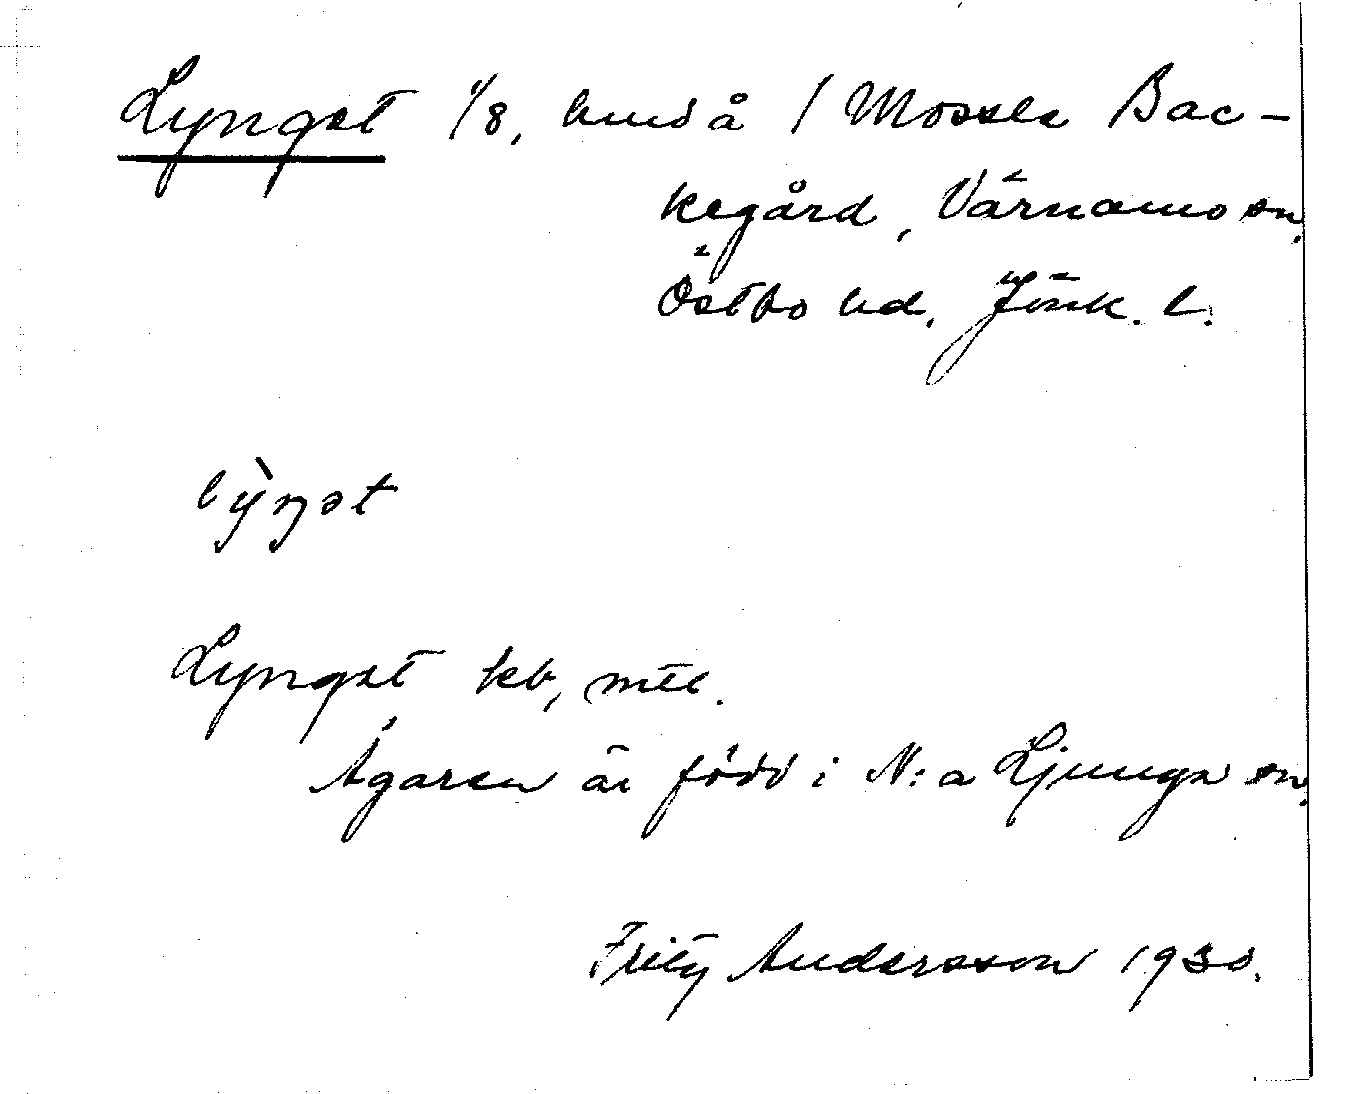 Lynget 1/8, hmd å / Mossle Bac-
kegård, Värnamo sn,
Östbo hd, Jönk. l.
lỳŋət
Lynget kb, mtl.
Ägaren är född i N:a Ljunga sn,
Fritz Andersson 1930.